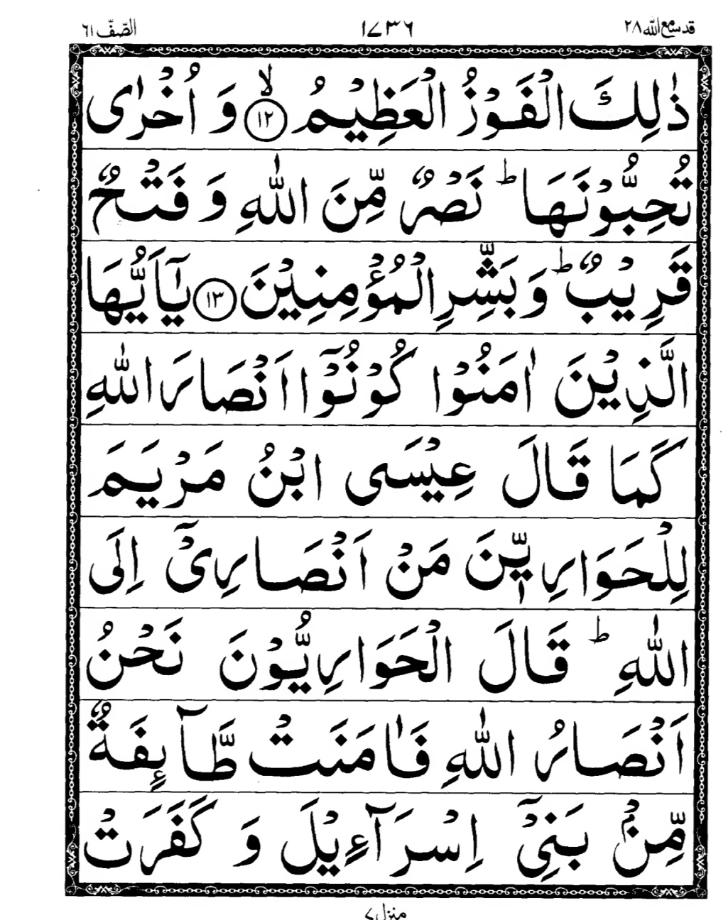 الصّفّ ٦١ ١٧٣٦ قد سمع الله ٢٨
ذٰلِكَ الْفَوْزُ الْعَظِيْمُ ۙ﴿١٢﴾ وَ اُخْرٰى
تُحِبُّوْنَهَا ؕ نَصْرٌ مِّنَ اللّٰهِ وَ فَتْحٌ
قَرِيْبٌ ؕ وَ بَشِّرِ الْمُؤْمِنِيْنَ ﴿١٣﴾ يٰۤاَيُّهَا
الَّذِيْنَ اٰمَنُوْا كُوْنُوْۤا اَنْصَارَ اللّٰهِ
كَمَا قَالَ عِيْسَى ابْنُ مَرْيَمَ
لِلْحَوَارِيّٖنَ مَنْ اَنْصَارِيْۤ اِلَى
اللّٰهِ ؕ قَالَ الْحَوَارِيُّوْنَ نَحْنُ
اَنْصَارُ اللّٰهِ فَاٰمَنَتْ طَّآىِٕفَةٌ
مِّنْۢ بَنِيْۤ اِسْرَآءِيْلَ وَ كَفَرَتْ
منزل ٧